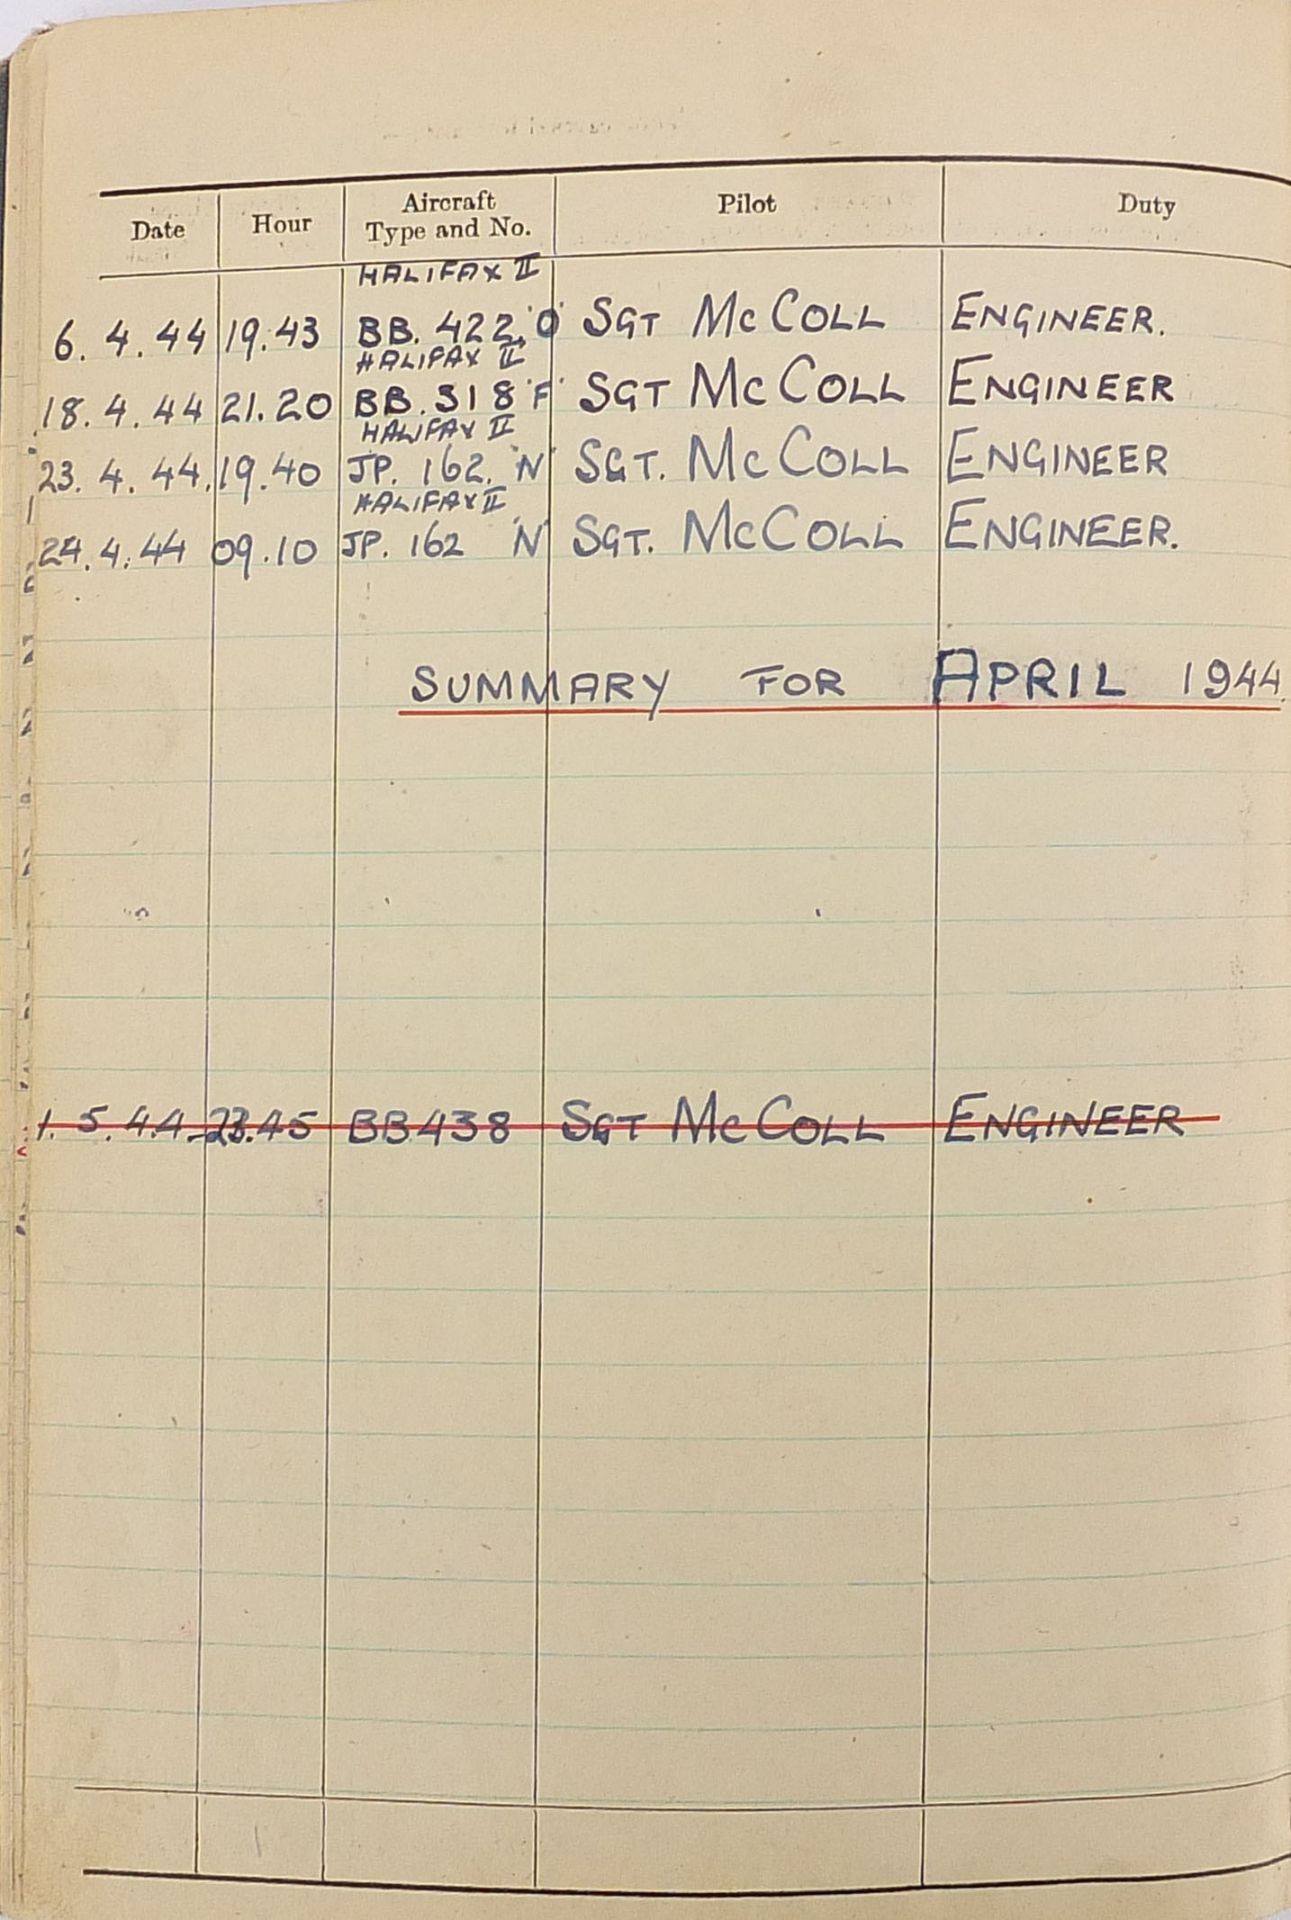 Date Hour Aircraft Type and No. Pilot Duty
HALIFAX II
6. 4. 44 19.43 BB. 422. 'O' SGT McCOLL ENGINEER.
HALIFAX II
18. 4. 44 21.20 BB. 318 'F' SGT McCOLL ENGINEER
HALIFAX II
23. 4. 44. 19.40 JP. 162. 'N' SGT. McCOLL ENGINEER
HALIFAX II
24. 4. 44 09.10 JP. 162 'N' SGT. McCOLL ENGINEER.
SUMMARY FOR APRIL 1944.
1. 5. 44. 23.45 BB438 SGT McCOLL ENGINEER